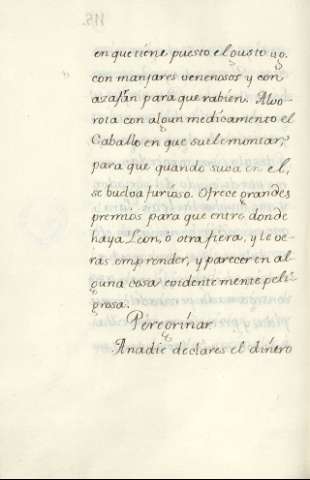 en que tiene puesto el gusto yo.
con manjares venenosos y con
azafrán para que rabien. Alvo-
rota con algun medicamento el
Caballo en que suele montar,
para que quando suva en el,
se buelva furioso. Ofrece grandes
premios para que entre donde
haya Leon, ò otra fiera, y le ve-
rás emprender, y parecer en al-
guna cosa evidentemente peli-
grosa.
Peregrinar
A nadie declares el dinero